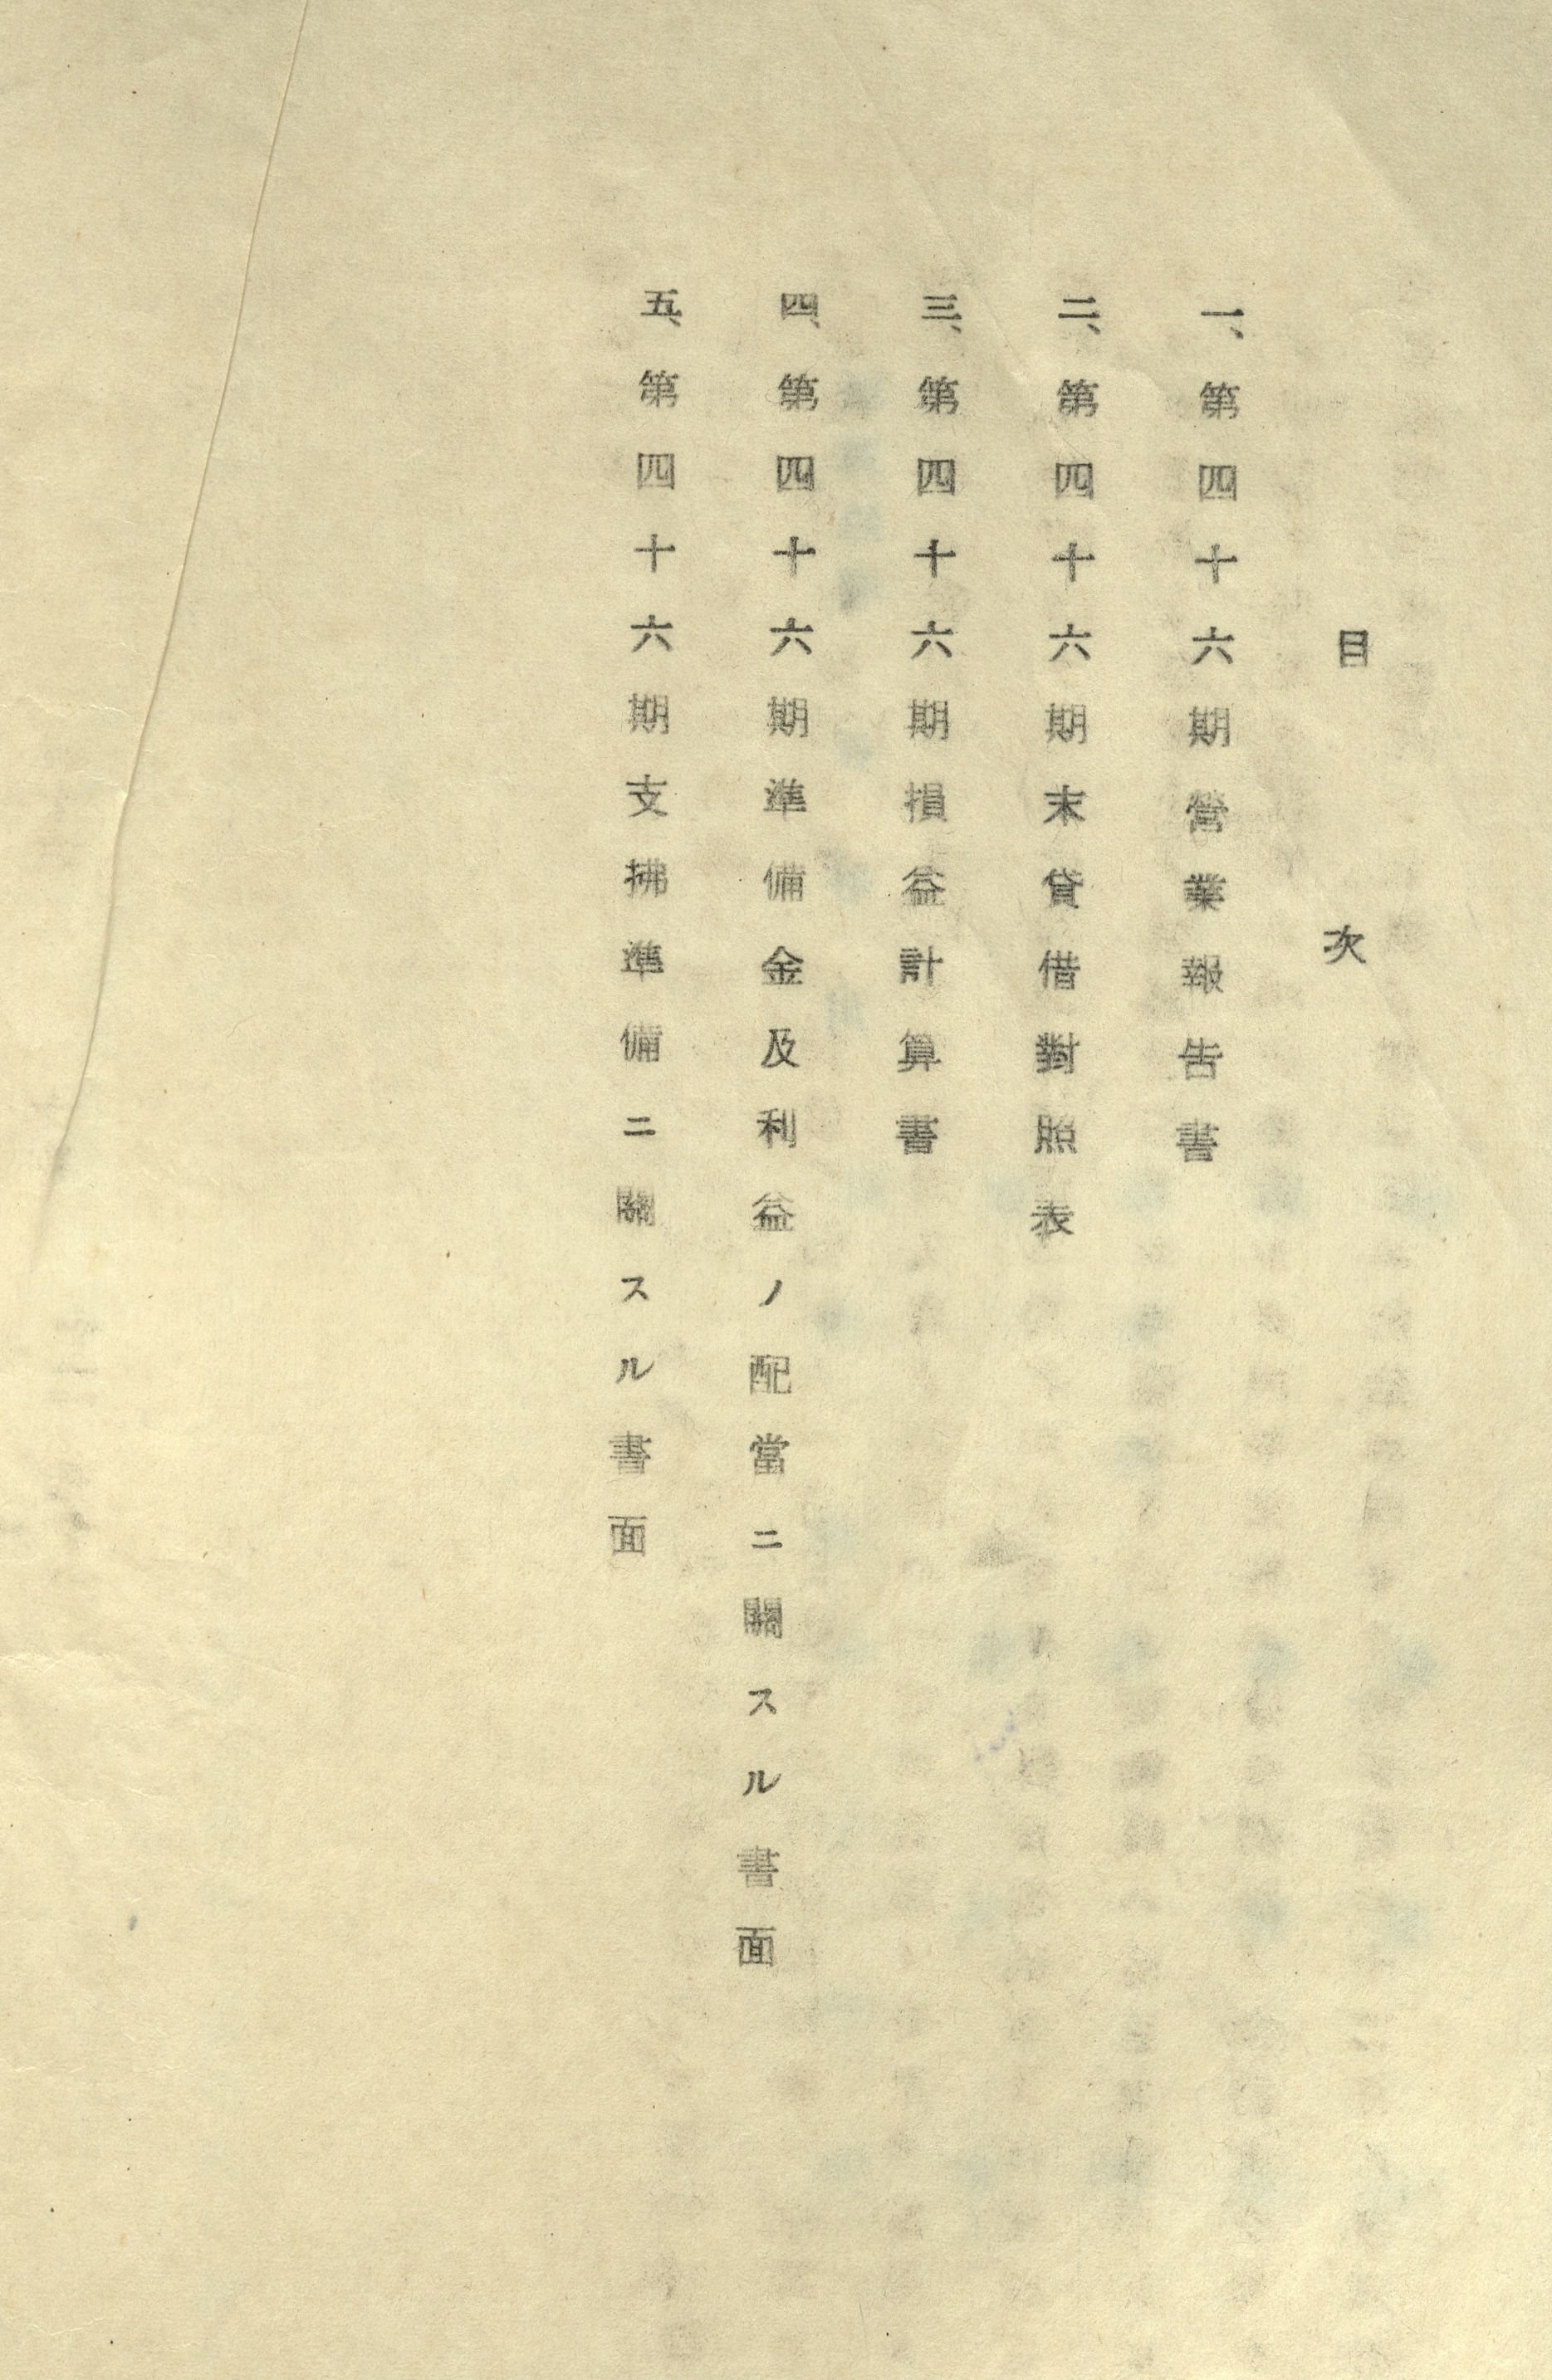 目次
一、第四十六期營業報告書
二、第四十六期末貸借對照表
三、第四十六期損益計算書
四、第四十六期準備金及利益ノ配當ニ關スル書面
五、第四十六期支拂準備ニ關スル書面